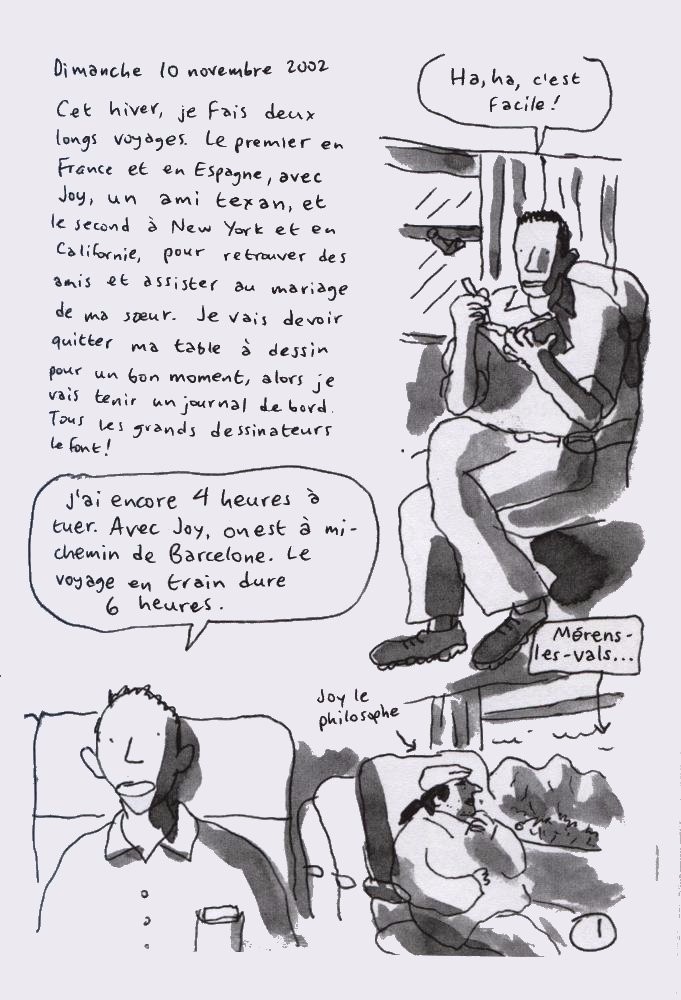 Dimanche 10 novembre 2002
Cet hiver, je fais deux
longs voyages. Le premier en
France et en Espagne, avec
Joy, un ami texan, et
le second à New York et en
Californie, pour retrouver des
amis et assister au mariage
de ma sœur. Je vais devoir
quitter ma table à dessin
pour un bon moment, alors je
vais tenir un journal de bord.
Tous les grands dessinateurs
le font!
Ha, ha, c'est
facile!
J'ai encore 4 heures à
tuer. Avec Joy, on est à mi-
chemin de Barcelone. Le
voyage en train dure
6 heures.
Mérens-
les-vals...
Joy le
philosophe
1